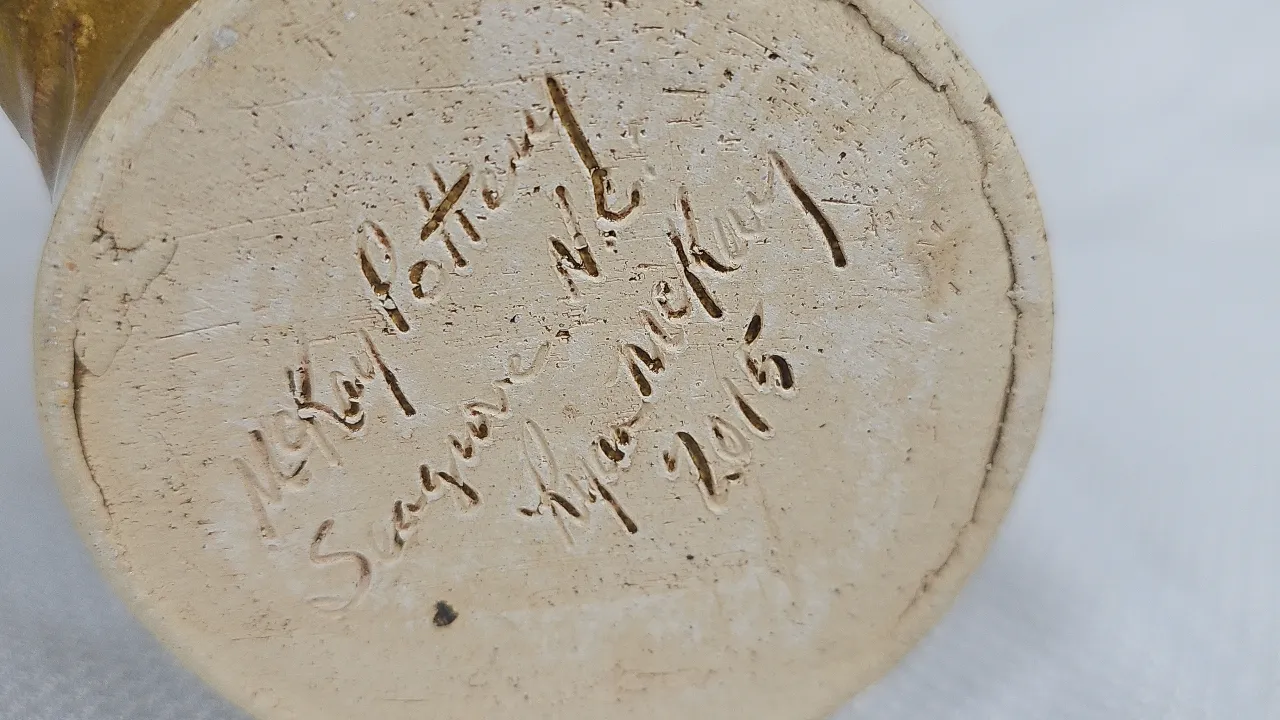 McKay Pottery
Seagrove N.C.
Ryan McKay
2015